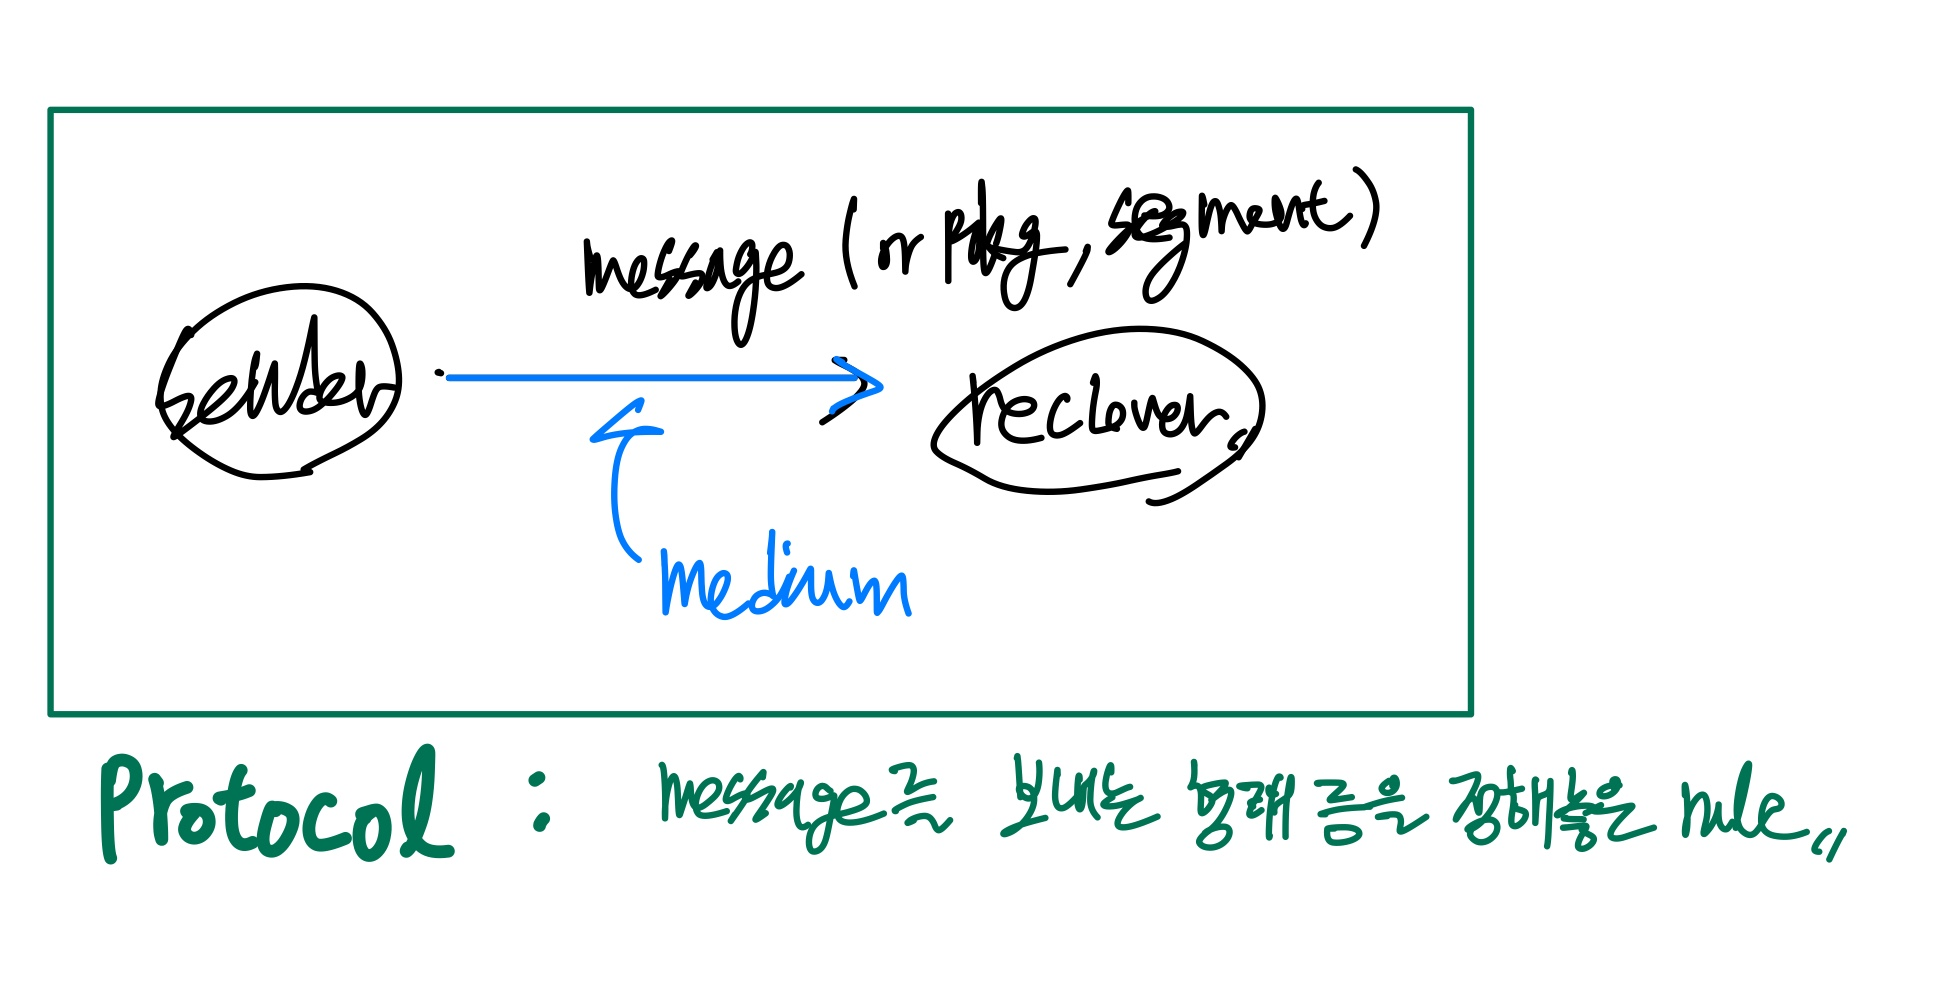 message (or pkg, segment)
sender
reciever
medium
Protocol : message를 보내는 형태 름을 정해놓은 rule